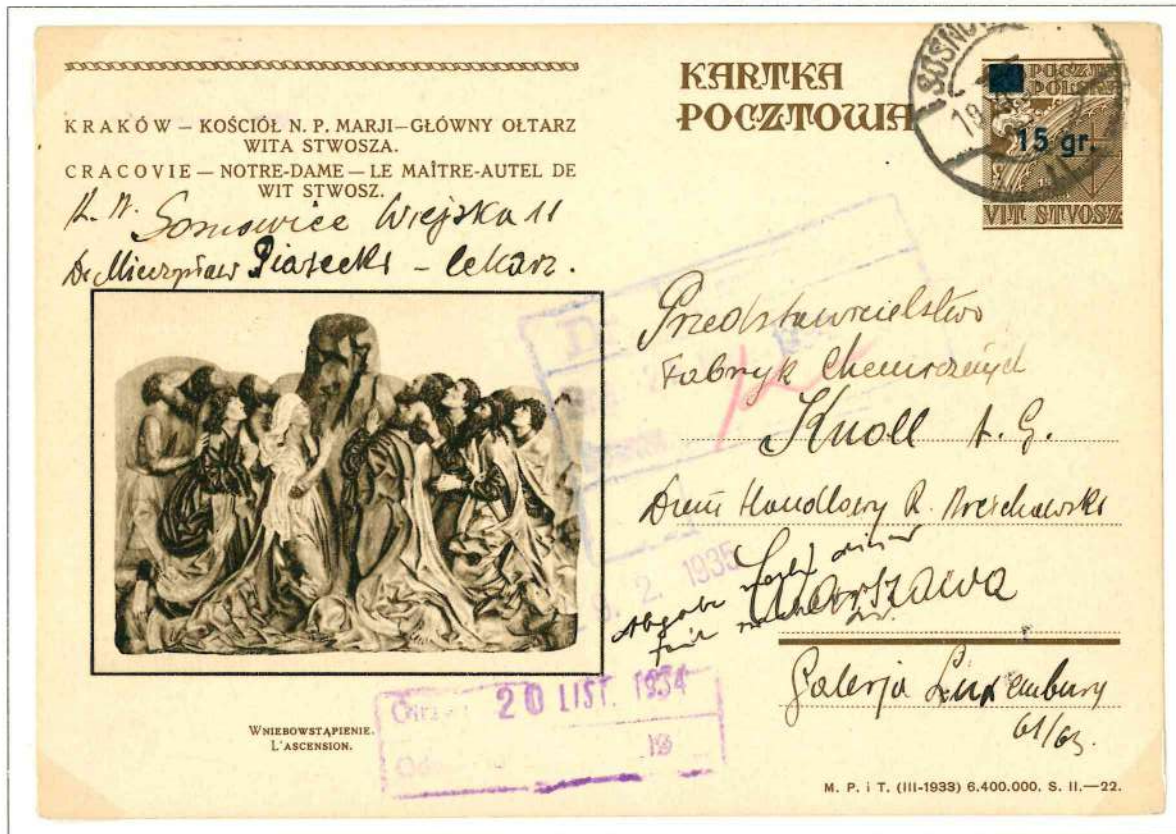 KRAKÓW — KOŚCIÓŁ N. P. MARJI—GŁÓWNY OŁTARZ
WITA STWOSZA.
CRACOVIE — NOTRE-DAME — LE MAÎTRE-AUTEL DE
WIT STWOSZ.
Sosnowice Wiejska 11
Dr Mieczysław Piasecki – lekarz.
WNIEBOWSTĄPIENIE.
L'ASCENSION.
KARTKA
POCZTOWA
POCZTA
POLSKA
15 gr.
VIT STVOSZ
SOSNOW
Przedstawicielstwo
Fabryk Chemicznych
Knoll A. G.
Dom Handlowy R.
Warszawa
Galerja Luxemburg
61/63.
2. 1935
20 LIST. 1934
M. P. i T. (III-1933) 6.400.000. S. II.—22.